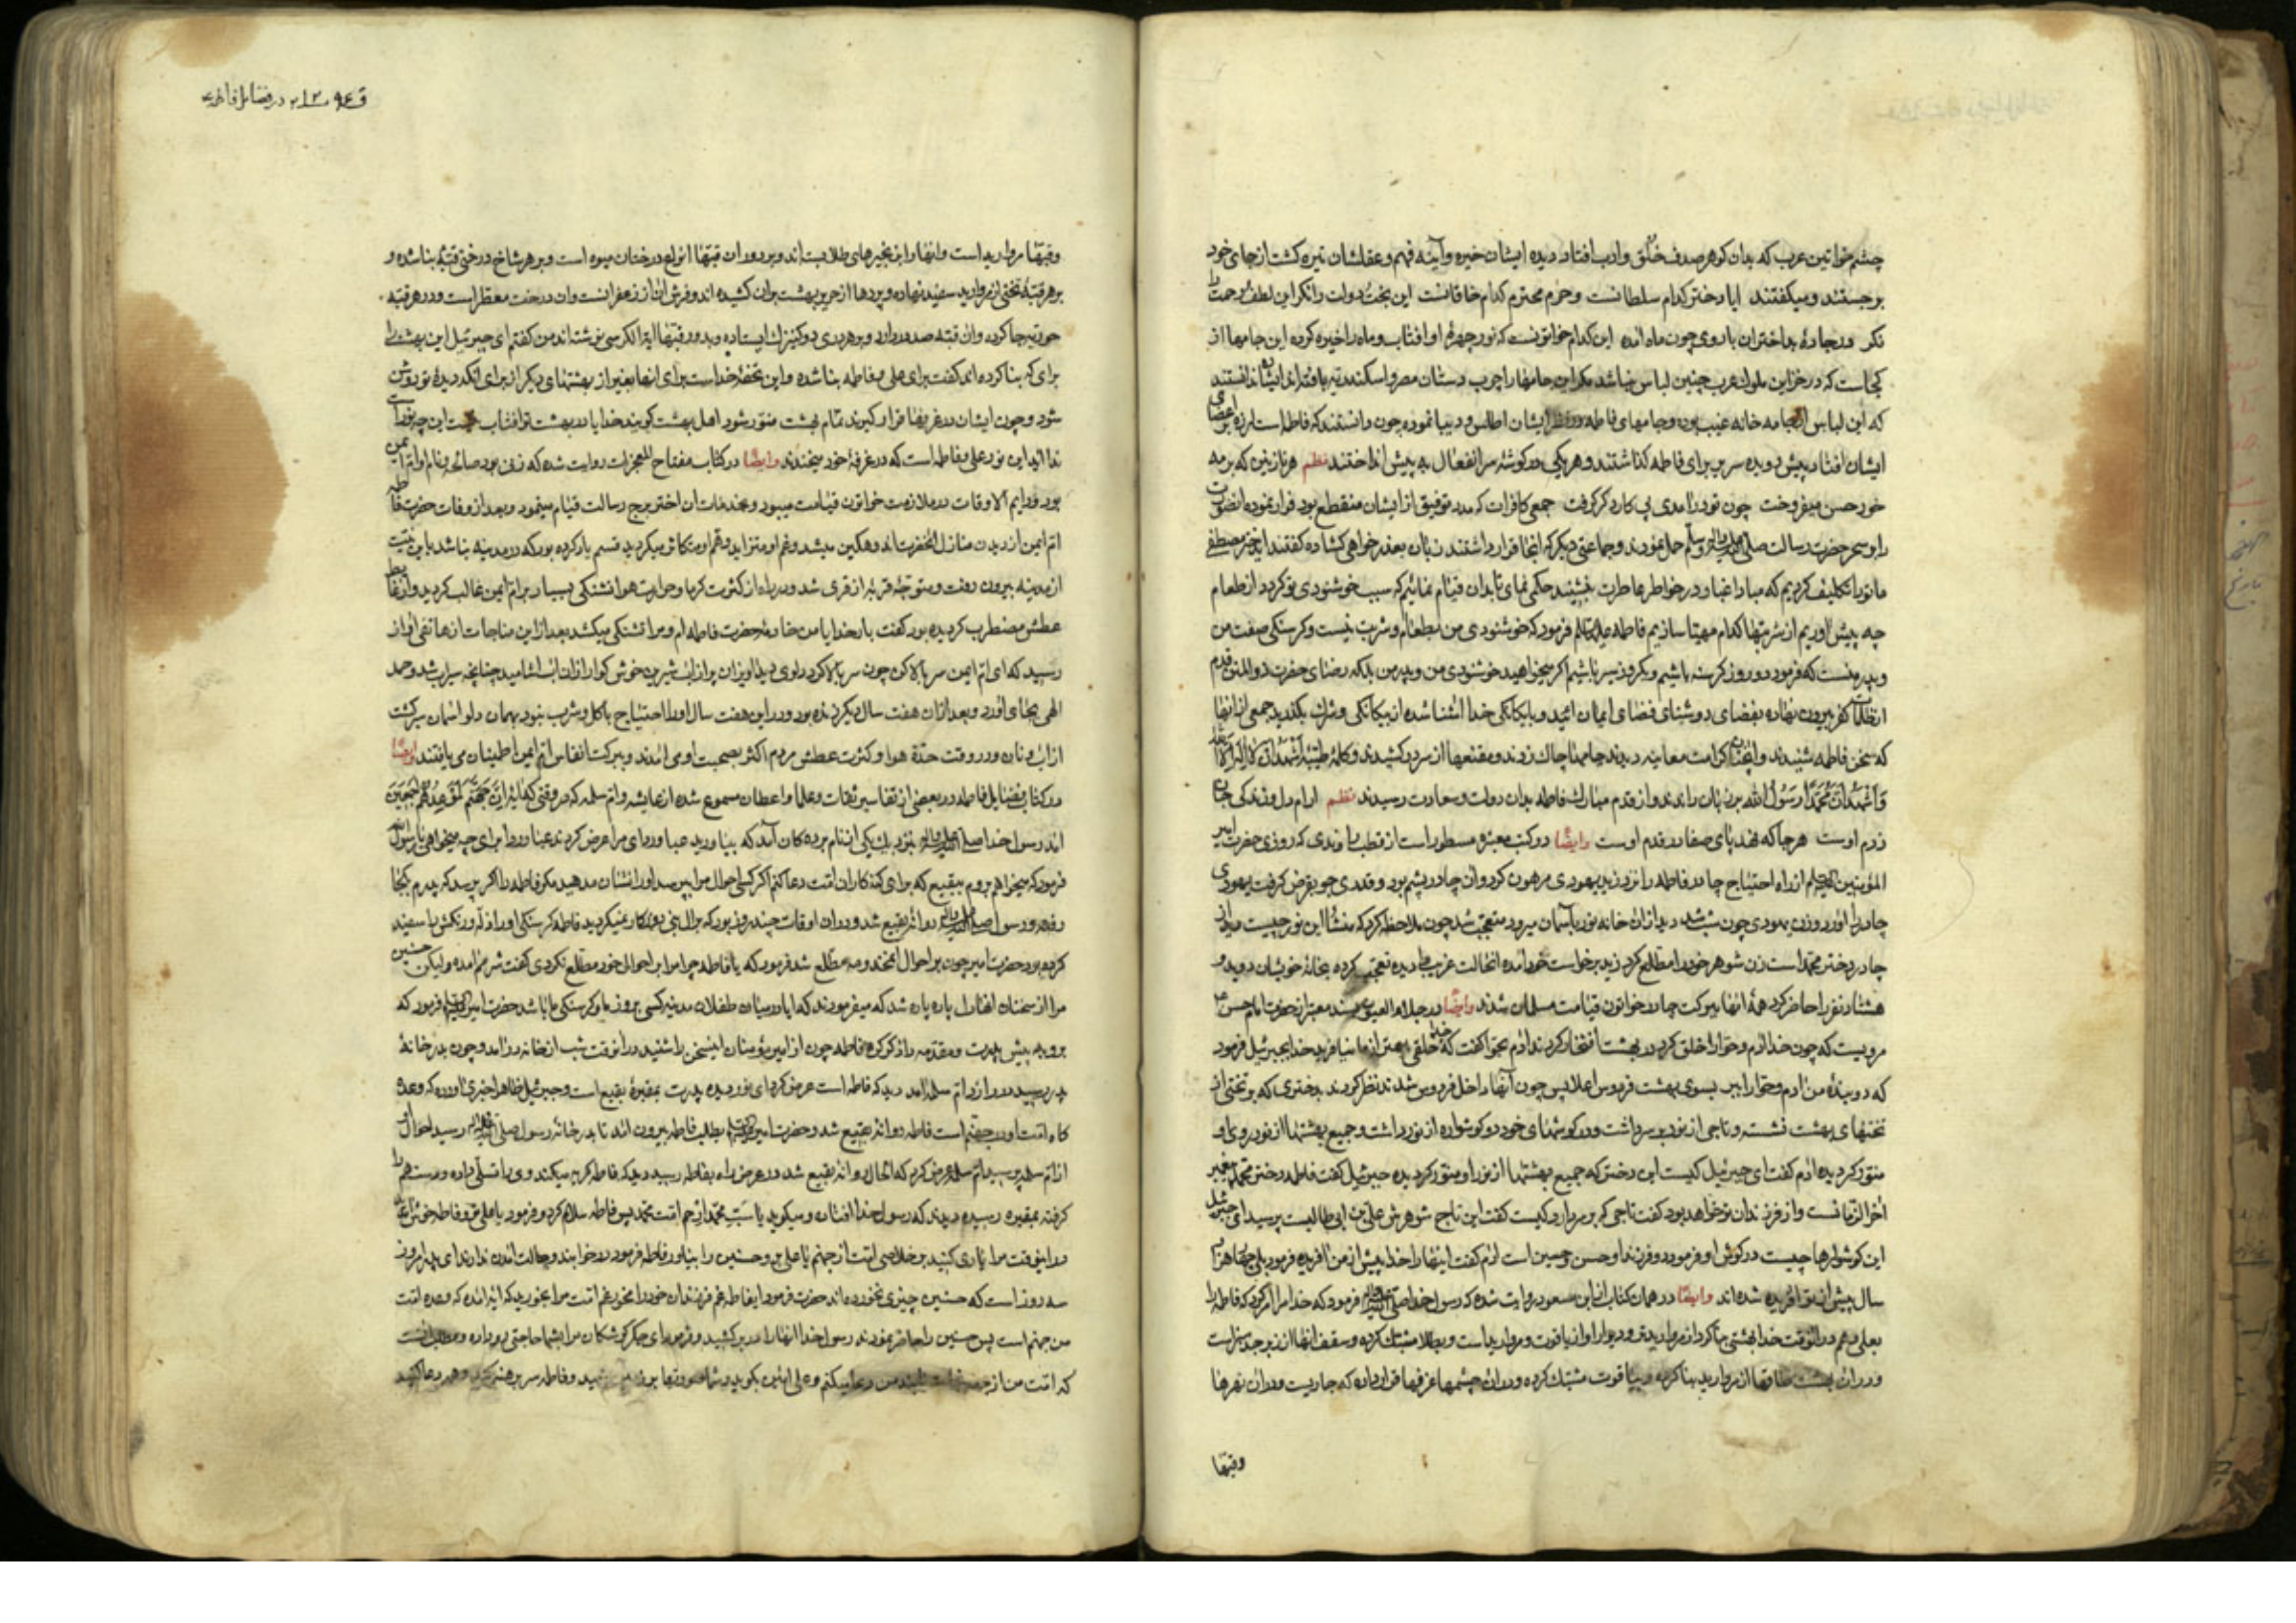 چشم خواتین عرب که بدان کوهر صدف خلق و ادب افتاد دیده ایشان خیره و آینه فهم و عقلشان تیره کشت از جای خود
برجستند و میکفتند ایا دختر کدام سلطانست و حرم محترم کدام خاقانست این بخت و دولت را نکر این لطف و رحمت را
نکر این کدام خواتونست که نور چهره او افتاب و ماه را خیره کرده این جامها از
کجاست که در خزاین ملوک عرب چنین لباس نباشد مکر این جامها را چرب دستان مصر و اسکندریه بافته اند ایشان ندانستند
که این لباس از جامه خانه غیب بود و جامهای فاطمه در نظر ایشان اطلس و دیبا نموده چون دانستند که فاطمه است لرزه بر اعضای
ایشان افتاد پیش دویده سریر برای فاطمه کذاشتند و هر یکی در کوشه سر انفعال به پیش انداختند نظم هر نازنین که بر مه
خود حسن میفروخت چون تو درامدی پی کار دکر کرفت جمعی کافران که مدد توفیق از ایشان منقطع بود فرار نموده
را بر سحر حضرت رسالت صلی الله علیه واله وسلم حمل نمودند و جماعتی دیکر که انجا قرار داشتند زبان بعذر خواهی کشاده کفتند ای دختر مصطفی
ما تو را تکلیف کردیم که مبادا غبار در خواطر عاطرت نشیند حکمی نمای تا بدان قیام نمائیم که سبب خوشنودی تو کردد از طعام
چه پیش اوریم از شربتها کدام مهیا سازیم فاطمه علیها السلم فرمود که خوشنودی من مطعام و شربت نیست و کرسنکی صفت من
و پدر منست که فرمود دو روز کرسنه باشیم و یکروز سیر باشیم اکر میخواهید خوشنودی من و پدر من بلکه رضای حضرت ذو المنن قدم
از ظلمات کفر بیرون نهاده بفضای روشنای فضای ایمان ائید و با یکانکی خدا اشنا شده از بیکانکی و شرک بکذرید جمعی از انها
که سخن فاطمه شنیدند و انچنان کرامت معاینه دیدند جامها چاک زدند و مقنعها از سر در کشیدند و کلمه طیبه اشهد ان لا اله الا الله
و اشهد ان محمدا رسول الله بر زبان راندند و از قدم مبارک فاطمه بدان دولت و سعادت رسیدند نظم ارام دل و زندکی جان
ز دم اوست هر جا که نهد پای صفا در قدم اوست وایضا در کتب معتبره مسطور است از قطب راوندی که روزی حضرت امیر
المؤمنین علیه السلم از راه احتیاج چادر فاطمه را نزد زید یهودی مرهون کرد وان چادر پشم بود و قدری جو بقرض کرفت یهودی
چادر را اورد زن یهودی چون شب شد دید از ان خانه نور باسمان میرود متعجب شد چون ملاحظه کرد که منشا این نور چیست دید از
چادر دختر محمد است زن شوهر خود را مطلع کرد زید برخواست خود امده انحالت غریب را دیده تعجب کرده بخانه خویشان دوید و
هشتاد نفر را حاضر کرد همه انها ببرکت چادر خواتون قیامت مسلمان شدند وایضا در جلاء العیون بسند معتبر از حضرت امام حسن
مرویست که چون خدا ادم و حوا را خلق کرد در بهشت افتخار کردند ادم بحوا کفت که خدا خلقی بهتر از ما نیافرید خدا بجبرئیل فرمود
که دو بنده من ادم و حوا را ببر بسوی بهشت فردوس اعلا پس چون انها داخل فردوس شدند نظر کردند بدختری که بر تختی از
تختهای بهشت نشسته و تاجی از نور بر سر داشت و در کوشهای خود دو کوشواره از نور داشت و جمیع بهشتها از نور روی او
منور کردیده ادم کفت ای جبرئیل کیست این دختر که جمیع بهشتها از نور او منور کردیده جبرئیل کفت فاطمه دختر محمد پیغمبر
اخر الزمانست و از فرزندان تو خواهد بود کفت تاجی که بر سر دارد کیست کفت این تاج شوهرش علی بن ابی طالبست پرسید ای جبرئیل
این کوشوارها چیست در کوش او فرمود دو فرزند او حسن و حسین است ادم کفت اینها را خدا پیش از من افریده فرمود بلی چهار هزار
سال پیش از تو افریده شده اند وایضا در همان کتاب از ابن مسعود روایت شده که رسول خدا صلی الله علیه واله فرمود که خدا مرا امر کرد که فاطمه را
بعلی دهم در انوقت خدا بهشتی بنا کرد از مروارید تر و دیوار او از یاقوت و مروارید است و بطلا مشبک کرده و سقف انها از زبرجد سبز است
و در ان بهشت طاقها از مروارید بنا کرده و بیاقوت مشبک کرده و در ان چشمها غرفها قرار داده که جاریست و در ان نهرها
وقبها
در فضایل فاطمه
وقبها مروارید است وانها را بزنجیرهای طلا بسته اند و بر دور ان قبها انواع درختان میوه است و بر هر شاخ درختی قبه بنا شده و
بر هر قبه تختی از مروارید سفید نهاده و پردها از حریر بهشت بران کشیده اند و فرش ان از زعفرانست وان درخت معطر است و در هر قبه
حوریه جا کرده وان قبه صد در دارد و بر هر دری دو کنیزک ایستاده و بر دور قبها ایة الکرسی نوشته اند من کفتم ای جبرئیل این بهشت را
برای که بنا کرده اند کفت برای علی و فاطمه بنا شده و این تحفه خداست برای انها بغیر از بهشتهای دیکر از برای انکه دیده تو روشن
شود و چون ایشان در غرفها قرار کیرند تمام بهشت منور شود اهل بهشت کویند خدایا در بهشت تو افتاب نیست این چه نور است
ندا اید این نور علی و فاطمه است که در غرفه خود میخندند وایضا در کتاب مفتاح المعجزات روایت شده که زنی بود صالحه و نام او ام ایمن
بود و دایم الاوقات در ملازمت خواتون قیامت میبود و بخدمات ان اختر برج رسالت قیام مینمود و بعد از وفات حضرت فاطمه
ام ایمن از دیدن منازل انحضرت اندوهکین میشد و غم او متزاید و هم او متکاثر میکردید قسم یاد کرده بود که در مدینه نباشد باین نیت
از مدینه بیرون رفت و متوجه قریه از قری شد و در راه از کثرت کرما و حرارت هوا تشنکی بسیار بر ام ایمن غالب کردید و از غایت
عطش مضطرب کردیده بود کفت بار خدایا من خادمه حضرت فاطمه ام و مرا تشنکی میکشد بعد از این مناجات از هاتفی اواز
رسید که ای ام ایمن سر بالا کن چون سر بالا کرد دلوی دید اویزان پر از اب شیرین خوش کوار از ان اب اشامید چنانچه سیراب شد و حمد
الهی بجای اورد و بعد از ان هفت سال دیکر زنده بود و در این هفت سال او را احتیاج باکل و شرب نبود بهمان دلو اسمان سیر کشت
از اب و نان و در وقت حدة هوا و کثرت عطش مردم اکثر بصحبت او می امدند و ببرکت انفاس ام ایمن اطمینان می یافتند وایضا
در کتاب فضایل فاطمه در بعضی از تفاسیر ثقات و علما واعظان مسموع شده از عایشه و ام سلمه که در وقتی که ایه ان جهنم لموعدهم اجمعین
امد رسول خدا صلی الله علیه واله بنزدیک یکی از نام برده کان آمد که بیاورید عبا و ردای مرا عرض کردند عبا و ردا برای چه میخواهی یا رسول الله
فرمود که میخواهم بروم ببقیع که برای کنه کاران امت دعا کنم اکر کسی احوال مرا پرسد او را نشان مدهید مکر فاطمه را اکر بپرسد که پدرم کجا
رفته و رسول صلی الله علیه واله روانه بقیع شد و در ان اوقات چند روز بود که
کرده بود حضرت امیر چون بر احوال انمخدومه مطلع شد فرمود که یا فاطمه چرا مرا بر احوال خود مطلع نکردی کفت شرمم امده و لیکن حسنین
مرا از سخنان انها دل پاره پاره شد که میفرمودند که ایا در میان طفلان مدینه کسی بروز ما و کرسنکی ما باشد حضرت امیر فرمود که
برو به پیش پدرت و مقدمه را ذکر کن فاطمه چون از امیر مؤمنان اینسخن را شنید در انوقت شب از خانه در امد و چون بدر خانه
پدر رسید در را زد ام سلمه امد دید که فاطمه است عرض کرد ای نور دیده پدرت بمقبره بقیع است و جبرئیل ظاهرا خبری اورده که وعده
کاه امت او جهنم است فاطمه روانه بقیع شد و حضرت امیر بطلب فاطمه بیرون امد تا بدر خانه رسول صلی الله علیه واله رسید احوال او
از ام سلمه پرسید ام سلمه عرض کرد که الحال روانه بقیع شد در عرض راه بفاطمه رسید دید که فاطمه کریه میکند وی را تسلی داده و دست هم را
کرفته بمقبره رسیده دیدند که رسول خدا افتاده و میکوید یا رب محمد ارحم امت محمد پس فاطمه سلام کرد و فرمود یا علی تو و فاطمه خوش امدید
در اینوقت مرا یاری کنید بر خلاصی امت از جهنم یا علی برو حسنین را بیاور فاطمه فرمود در خوابند و حالت امدن ندارند ای پدر امروز
سه روز است که حسنین چیزی نخورده اند حضرت فرمود ایفاطمه غم فرزندان خود را مخور غم امت مرا بخورید که ایه امده که وعده امت
من جهنم است پس حسنین را حاضر نمودند رسول خدا انها را در بر کشید و فرمود ای جکر کوشکان مرا بشما حاجتی رو داده و مطلب انست
که امت من از جهنم نجات یابند من دعا میکنم و علی امین بکوید و فاطمه سر برهنه کرده و هم دعا کنید